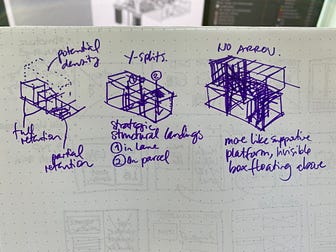 potential
density
full
retention
partial
retention
Y-splits.
②
①
strategic
structural landings
① in lane
② on parcel
NO ARROW.
more like supportive
platform, invisible
box floating above